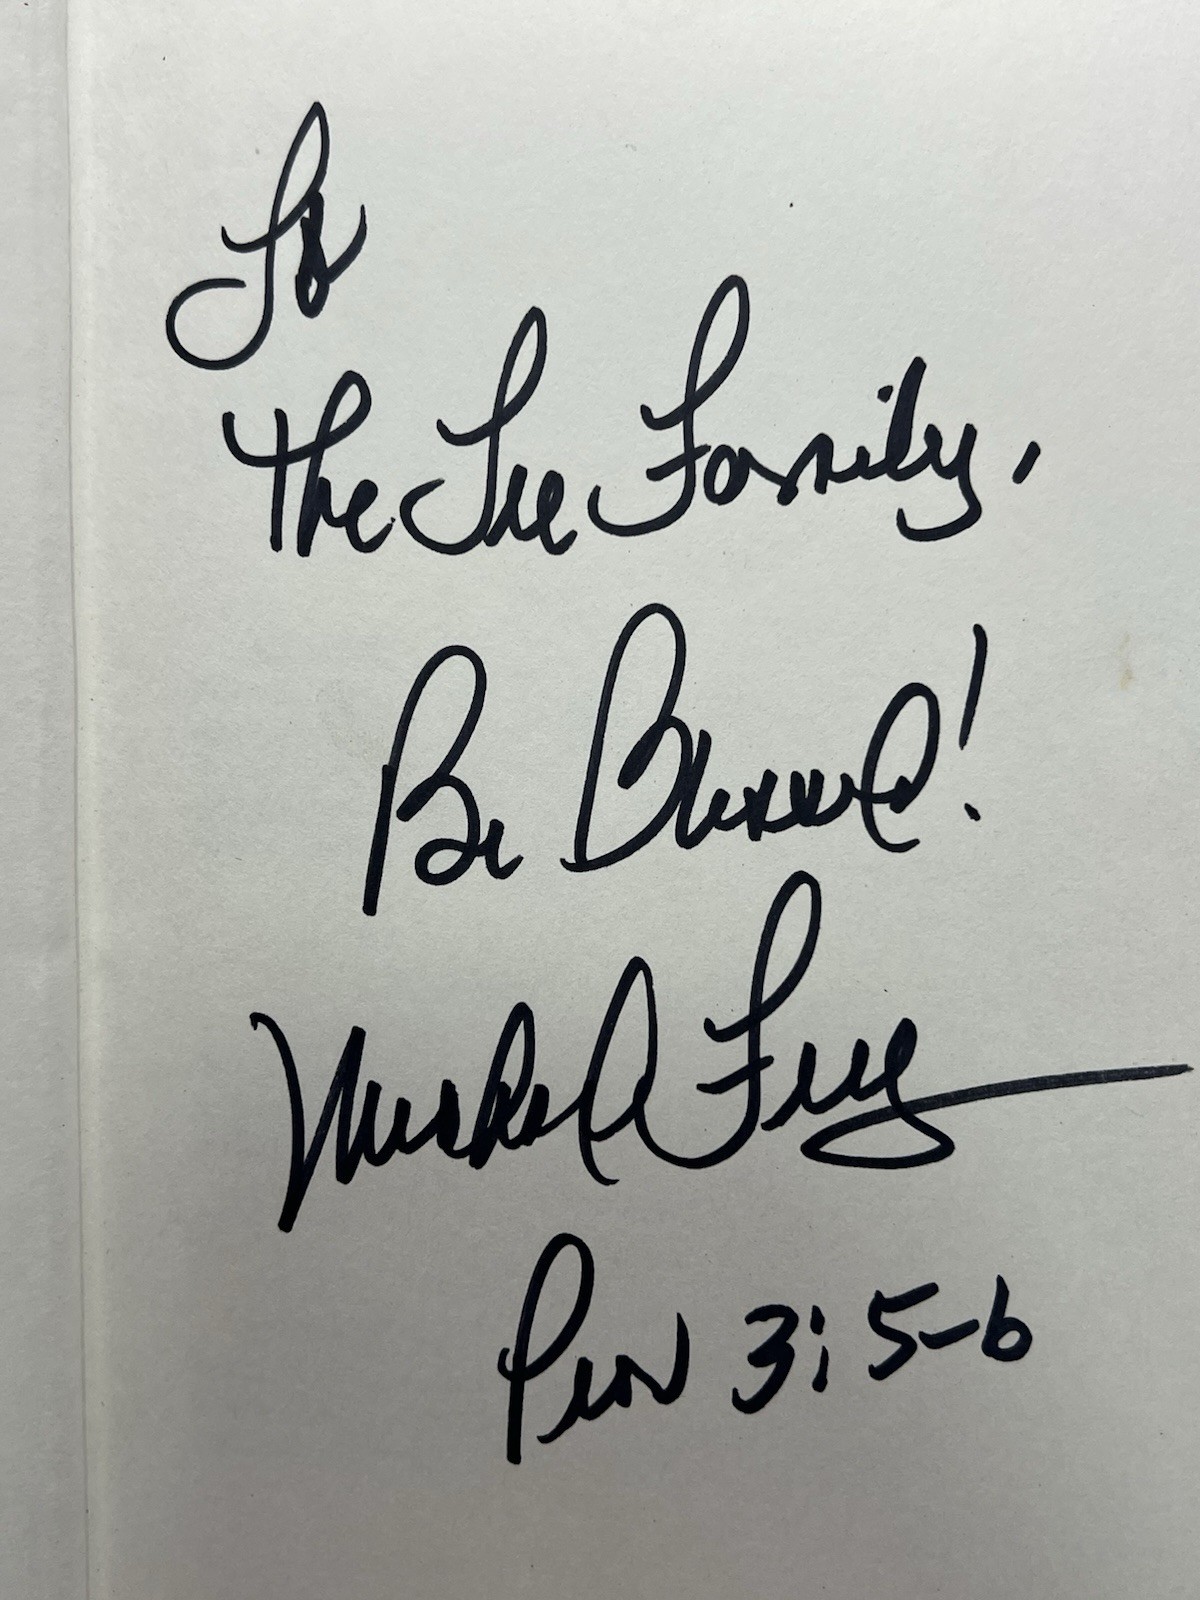 To
The Lee Family,
Be Blessed!
Michael Frey
Prov 3:5-6